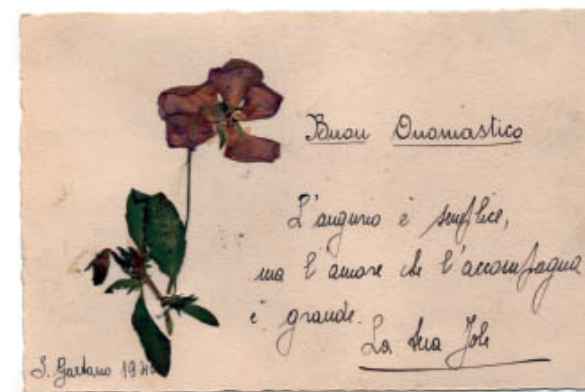 Buon Onomastico
L'augurio è semplice,
ma l'amore che l'accompagna
è grande.
La tua Jole
S. Gaetano